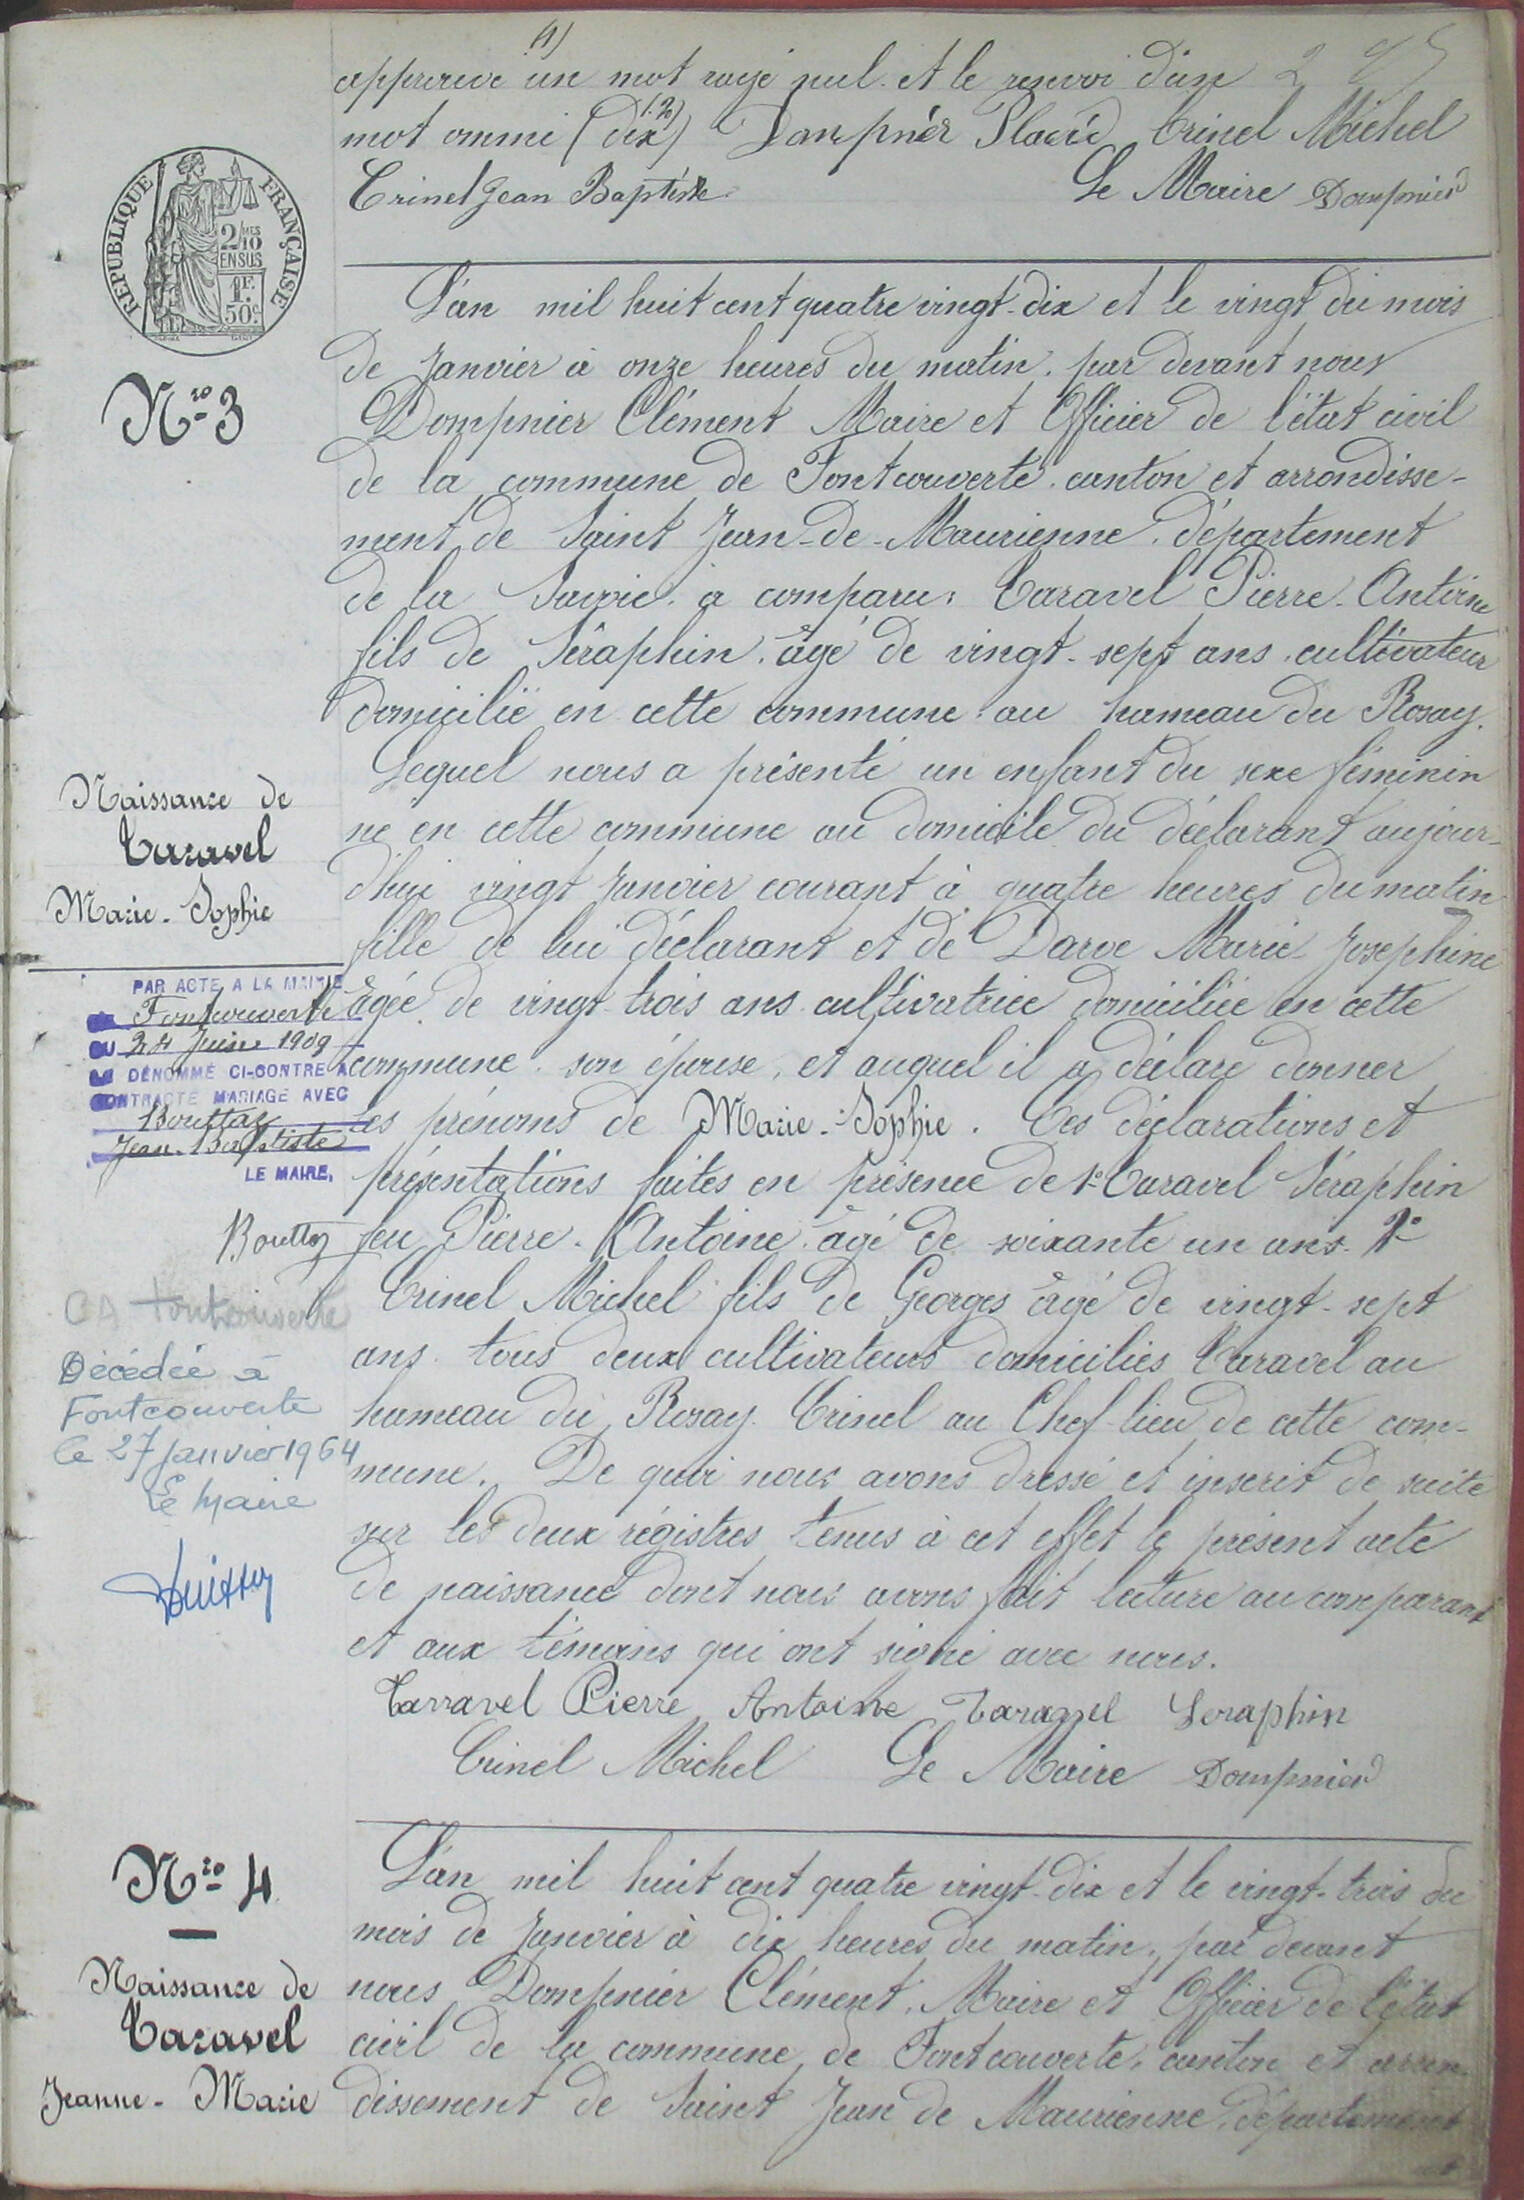 (1)
approuvé un mot rayé nul. et le renvoi d'un
mot ommi (dix) Dompnier Placid Trinel Michel
Trinel Jean Baptiste Le Maire Dompnier
REPUBLIQUE FRANÇAISE
2/10 MES
EN SUS
1F.
50c
L'an mil huit cent quatre vingt-dix et le vingt du mois
de Janvier à onze heures du matin. par devant nous
Nro 3
Dompnier Clément Maire et Officier de l'état civil
de la commune de Fontcouverte. canton et arrondisse-
ment de Saint Jean-de-Maurienne. département
de la Savoie. a comparu: Taravel Pierre-Antoine
fils de Séraphin. âgé de vingt-sept ans. cultivateur
domicilié en cette commune au hameau du Rosay.
Lequel nous a présenté un enfant du sexe féminin
né en cette commune au domicile du déclarant aujour-
d'hui vingt Janvier courant à quatre heures du matin
fille de lui déclarant et de Darve Marie Josephine
âgée de vingt trois ans cultivatrice domiciliée en cette
commune. son épouse, et auquel il a déclaré donner
les prénoms de Marie-Sophie. Ces déclarations et
présentations faites en présence de 1° Taravel Séraphin
feu Pierre-Antoine âgé de soixante un ans. 2°
Trinel Michel fils de Georges âgé de vingt-sept
ans. tous deux cultivateurs domiciliés Taravel au
hameau du Rosay. Trinel au Chef-lieu de cette com-
mune. De quoi nous avons dressé et inscrit de suite
sur les deux régistres tenus à cet effet le présent acte
de naissance dont nous avons fait lecture au comparant
et aux témoins qui ont signé avec nous.
Tarravel Pierre Antoine Taravel Seraphin
Trinel Michel Le Maire Dompnier
Naissance de
Taravel
Marie-Sophie
PAR ACTE A LA MAIRIE
Fontcouverte
DU 24 Juin 1909
DÉNOMMÉ CI-CONTRE A
CONTRACTÉ MARIAGE AVEC
Bouttaz
Jean-Baptiste
LE MAIRE,
Bouttaz
CA Fontcouverte
Décédée à
Fontcouverte
le 27 Janvier 1964
Le Maire
Nro 4
Naissance de
Taravel
Jeanne-Marie
L'an mil huit cent quatre vingt-dix et le vingt-trois du
mois de Janvier à dix heures du matin, par devant
nous Dompnier Clément, Maire et Officier de l'état
civil de la commune de Fontcouverte, canton et arron-
dissement de Saint Jean de Maurienne, département